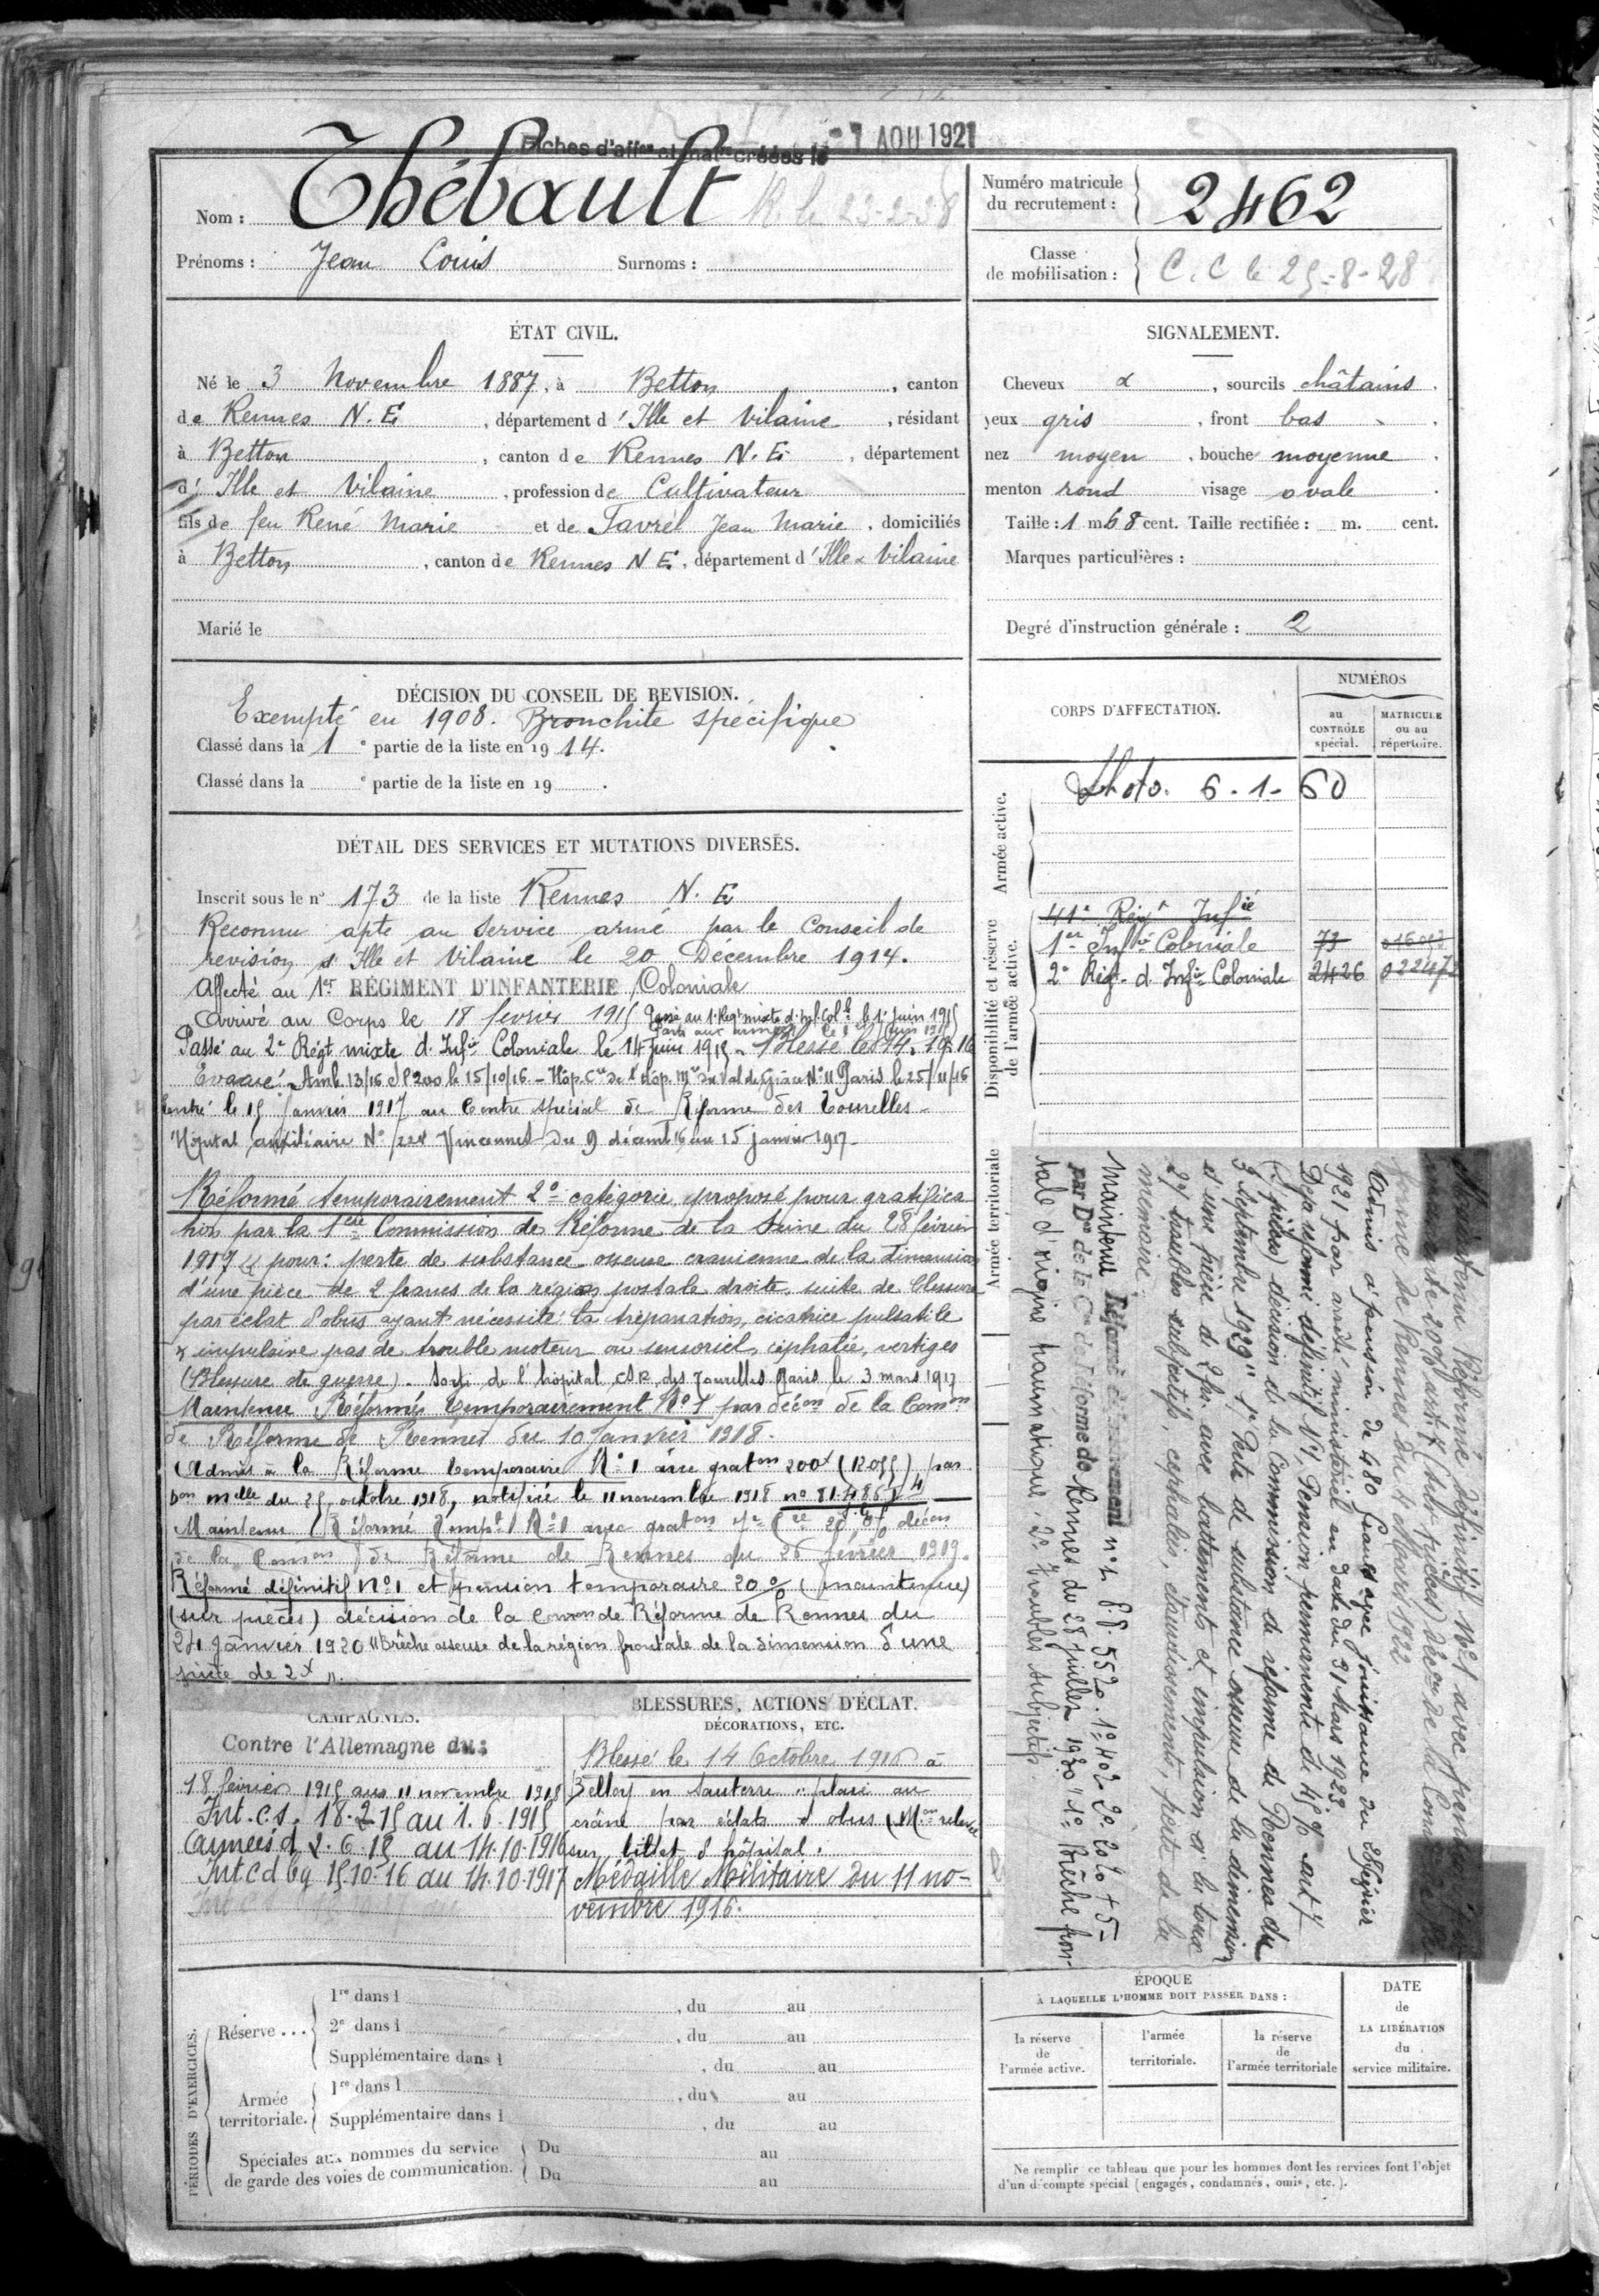 Fiches d'aff^on et mat^re créées le -1 AOU 1921
Nom : Thébault R. le 23-2-38
Prénoms : Jean Louis Surnoms :
Numéro matricule du recrutement : 2462
Classe de mobilisation : C. C le 25-8-28
ÉTAT CIVIL.
Né le 3 Novembre 1887, à Betton, canton
de Rennes N. E, département d'Ille et Vilaine, résidant
à Betton, canton de Rennes N. E, département
d'Ille et Vilaine, profession de Cultivateur
fils de feu René Marie et de Favrel Jean Marie, domiciliés
à Betton, canton de Rennes N E, département d'Ille & Vilaine
Marié le
SIGNALEMENT.
Cheveux &, sourcils châtains.
yeux gris, front bas.
nez moyen, bouche moyenne.
menton rond visage ovale.
Taille : 1 m 68 cent. Taille rectifiée : m. cent.
Marques particulières :
Degré d'instruction générale : 2
DÉCISION DU CONSEIL DE REVISION.
Exempté en 1908. Bronchite spécifique
Classé dans la 1e partie de la liste en 1914.
Classé dans la e partie de la liste en 19 .
CORPS D'AFFECTATION.
NUMÉROS
au CONTRÔLE spécial.
MATRICULE ou au répertoire.
Armée active.
Photo. 6-1-60
Disponibilité et réserve de l'armée active.
41e Régt Infie
1er Infie Coloniale 73
2e Régt d'Infie Coloniale 2426
Armée territoriale
DÉTAIL DES SERVICES ET MUTATIONS DIVERSES.
Inscrit sous le n° 173 de la liste Rennes N. E
Reconnu apte au service armé par le Conseil de
revision d'Ille et Vilaine le 20 Décembre 1914.
Affecté au 1er RÉGIMENT D'INFANTERIE Coloniale
Arrivé au Corps le 18 février 1915 Passé au 1. Régt mixte d'Inf. Colle le 1er Juin 1915
Parti aux armées le 2 Juin 1915
Passé au 2e Régt mixte d'Infie Coloniale le 14 Juin 1915. Blessé le 14.10.16
Évacué. Amb. 13/16 SP 200 le 15/10/16 - Hôp. Cre de l'Hôp. Mre du Val de Grâce N° 11 Paris le 25/11/16
Rentré le 15 Janvier 1917 au Centre Spécial de Réforme des Tourelles -
Hôpital auxiliaire N° 224 Vincennes du 9 décemb 16 au 15 janvier 1917 -
Réformé temporairement 2e catégorie, proposé pour gratifica
tion par la 1ère Commission de Réforme de la Seine du 28 février
1917 pour : perte de substance osseuse cranienne de la dimension
d'une pièce de 2 francs de la région frontale droite, suite de blessure
par éclat d'obus ayant nécessité la trépanation, cicatrice pulsatile
& impulsive pas de trouble moteur ou sensoriel, céphalée, vertiges
(Blessure de guerre). Sorti de l'hôpital CSR des Tourelles Paris le 3 mars 1917
Maintenu Réformé temporairement N° 1 par décon de la Comon
de Réforme de Rennes du 10 Janvier 1918.
Admis à la Réforme temporaire N° 1 avec graton 200f (12055) par
Don mlle du 25 octobre 1918, notifiée le 11 novembre 1918 n° 81.486
Maintenu Réformé Tempre N° 1 avec graton 20 % décon
de la Comon de Réforme de Rennes du 26 février 1919.
Réformé définitif N° 1 et pension temporaire 20 % (maintenue)
(sur pièces) décision de la Comon de Réforme de Rennes du
24 Janvier 1920 "Brèche osseuse de la région frontale de la dimension d'une
pièce de 2f".
Maintenu Réformé définitif N° 1 avec
20 % art. 7 (sur pièces) décon de la Comon de
Réforme de Rennes du 4 Mars 1922
Admis à pension de 480 francs avec jouissance du
1921 par arrêté ministériel en date du 31 Mars 1923
Déjà réformé définitif N° 1, Pension permanente de 45 % art 4
(s. pièces) décision de la Commission de réforme de Rennes du
3 Septembre 1929 "1° Perte de substance osseuse de la dimension
et une pièce de 2 fr. avec battements et impulsion à la toux
2° troubles subjectifs, céphalées, étourdissements, perte de la
mémoire.
Maintenu Réformé définitivement n° 1 P.P. 55%. 1° 40% 2° 20% + 5
par Don de la Con de Réforme de Rennes du 28 Juillet 1930 "1° Brèche fron-
tale d'origine traumatique. 2° Troubles subjectifs
CAMPAGNES.
Contre l'Allemagne du :
18 février 1915 au 11 novembre 1918
Int. c.s. 18-2-15 au 1.6.1915
Armées d. 2.6.15 au 14.10.1916
Int c d bg 15.10.16 au 14.10.1917
BLESSURES, ACTIONS D'ÉCLAT, DÉCORATIONS, ETC.
Blessé le 14 Octobre 1916 à
Belloy en Santerre : plaie au
crâne par éclats d'obus (Mon relevé
sur billet d'hôpital.
Médaille Militaire du 11 no-
vembre 1916.
PÉRIODES D'EXERCICES.
Réserve ...
1re dans l , du au
2e dans l , du au
Supplémentaire dans l , du au
Armée territoriale.
1re dans l , du au
Supplémentaire dans l , du au
Spéciales aux hommes du service de garde des voies de communication.
Du au
Du au
ÉPOQUE
À LAQUELLE L'HOMME DOIT PASSER DANS :
la réserve de l'armée active.
l'armée territoriale.
la réserve de l'armée territoriale
DATE de LA LIBÉRATION du service militaire.
Ne remplir ce tableau que pour les hommes dont les services font l'objet
d'un décompte spécial (engagés, condamnés, omis, etc.).